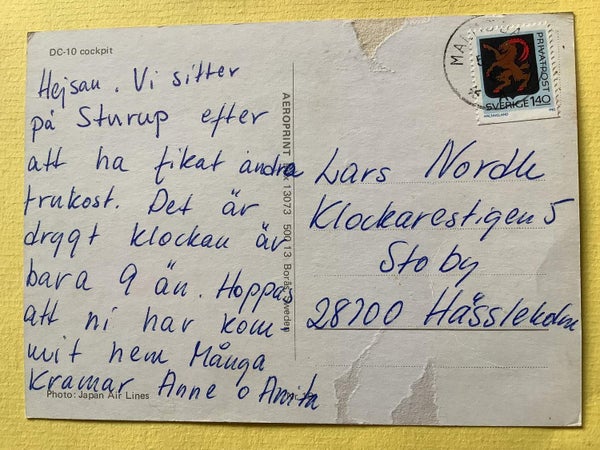 DC-10 cockpit
Hejsan. Vi sitter
på Sturup efter
att ha fikat andra
frukost. Det är
drygt klockan är
bara 9 än. Hoppas
att ni har kom
mit hem Många
Kramar Anne o Anita
Photo: Japan Air Lines
AEROPRINT Box 13073 500 13 Borås Sweden
PRIVATPOST
SVERIGE 140
Lars Nordh
Klockarestigen 5
Stoby
28700 Hässleholm